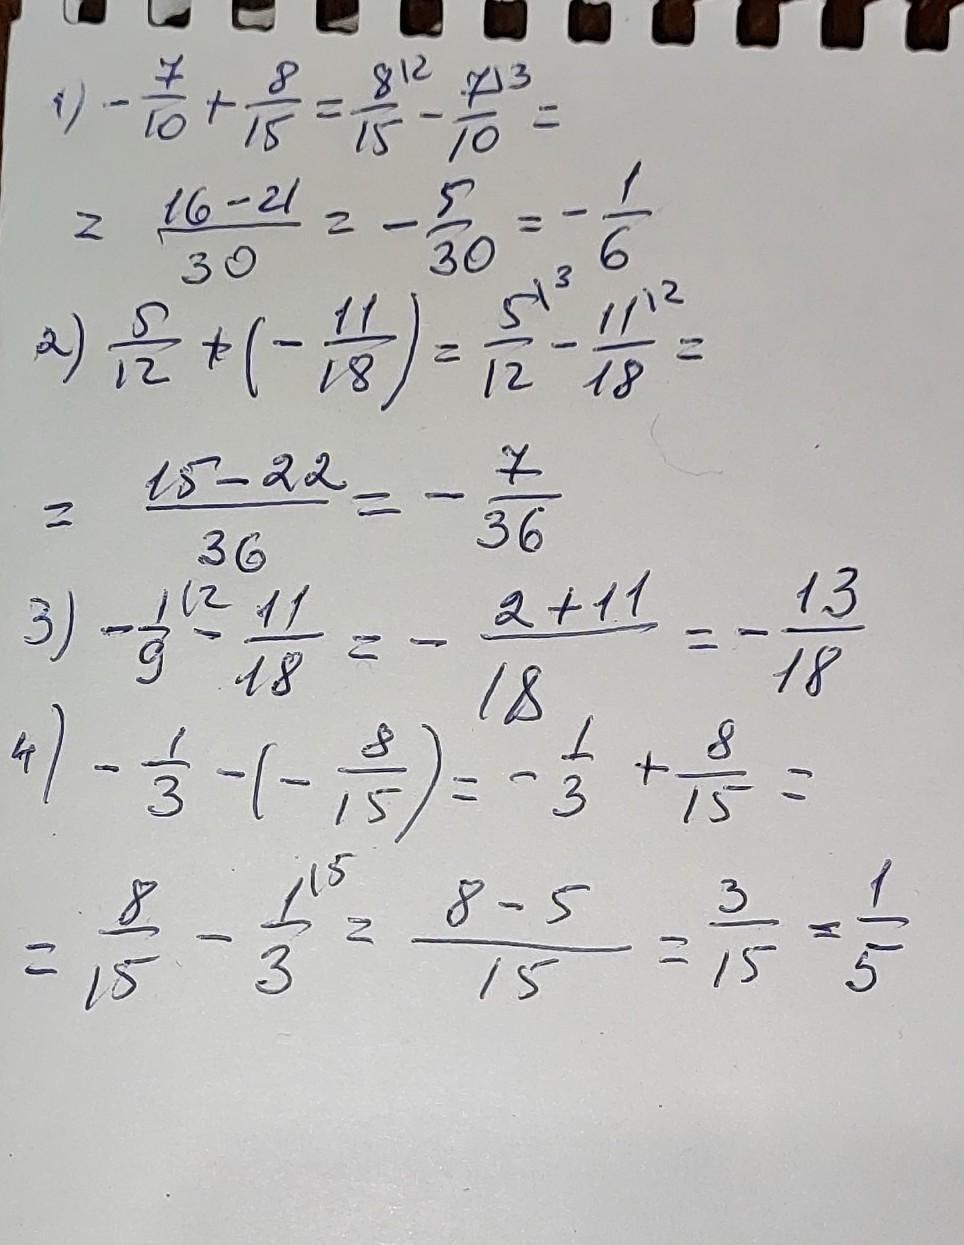 1) - 7/10 + 8/15 = 8\2/15 - 7\3/10 =
= 16-21/30 = - 5/30 = - 1/6
2) 5/12 + (- 11/18) = 5\3/12 - 11\2/18 =
= 15-22/36 = - 7/36
3) - 1\2/9 - 11/18 = - 2+11/18 = - 13/18
4) - 1/3 - (- 8/15) = - 1/3 + 8/15 =
= 8/15 - 1\5/3 = 8-5/15 = 3/15 = 1/5